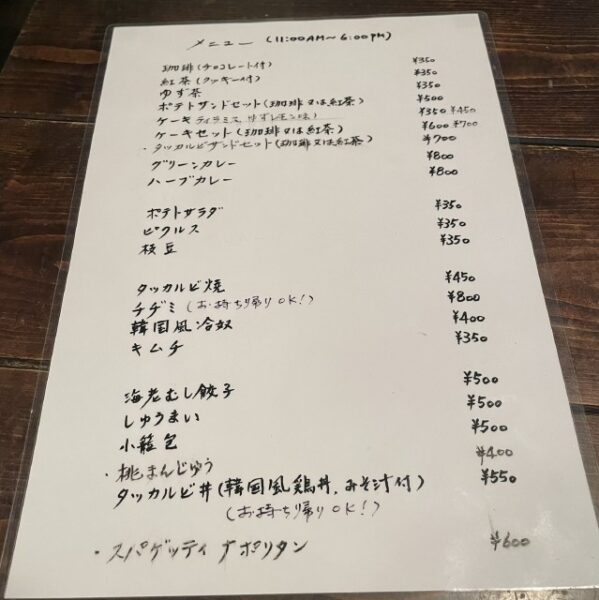 メニュー (11:00AM〜6:00PM)
珈琲(チョコレート付) ¥350
紅茶(クッキー付) ¥350
ゆず茶 ¥350
ポテトサンドセット(珈琲又は紅茶) ¥500
ケーキ ティラミス ゆずレモン味 ¥350 ¥450
ケーキセット(珈琲又は紅茶) ¥600 ¥700
・タッカルビサンドセット(珈琲又は紅茶) ¥700
グリーンカレー ¥800
ハーブカレー ¥800
ポテトサラダ ¥350
ピクルス ¥350
枝豆 ¥350
タッカルビ焼 ¥450
チヂミ(お持ち帰りOK!) ¥800
韓国風冷奴 ¥400
キムチ ¥350
海老むし餃子 ¥500
しゅうまい ¥500
小籠包 ¥500
・桃まんじゅう ¥400
タッカルビ丼(韓国風鶏丼、みそ汁付) ¥550
(お持ち帰りOK!)
・スパゲッティ ナポリタン ¥600